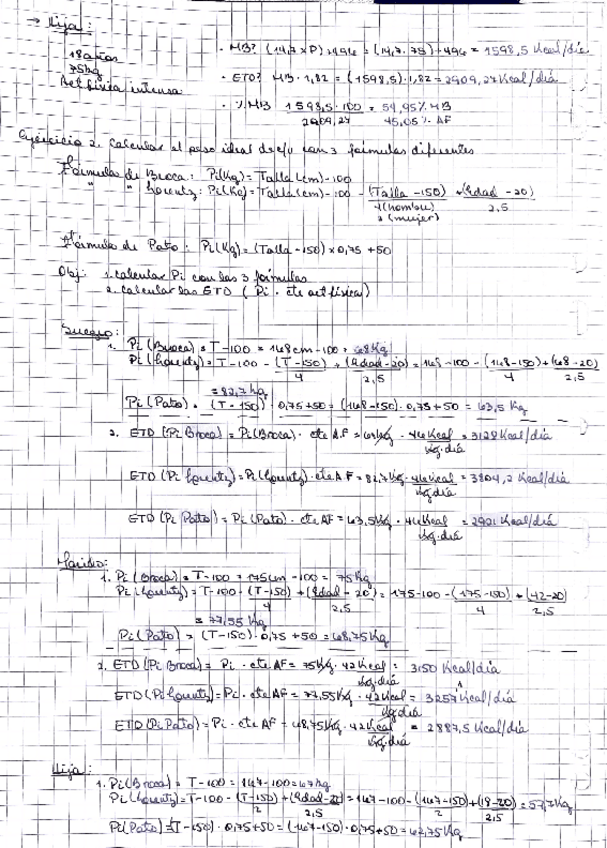 → Hija:
18 años
75kg
Act física intensa
· MB? (14,7 x P) + 496 = (14,7 · 75) + 496 = 1598,5 Kcal/día
· ETD? MB · 1,82 = (1598,5) · 1,82 = 2909,27 Kcal/día
· % MB 1598,5 · 100 = 54,95% MB
2909,27 45,05% AF
Ejercicio 2. Calcular el peso ideal de c/u con 3 fórmulas diferentes
Fórmula de Broca: Pi(Kg) = Talla (cm) - 100
" " Lorentz: Pi(Kg) = Talla (cm) - 100 - (Talla - 150) + (Edad - 20)
4 (hombre) 2,5
2 (mujer)
Fórmula de Pato: Pi(Kg) = (Talla - 150) x 0,75 + 50
Obj: 1. calcular Pi con las 3 fórmulas
2. calcular las ETD (Pi · cte act física)
Suegro:
1. Pi (Broca) = T - 100 = 168cm - 100 = 68Kg
Pi (Lorentz) = T - 100 - (T - 150) + (Edad - 20) = 168 - 100 - (168 - 150) + (68 - 20)
4 2,5 4 2,5
= 82,7 kg
Pi (Pato) = (T - 150) · 0,75 + 50 = (168 - 150) · 0,75 + 50 = 63,5 Kg
2. ETD (Pi Broca) = Pi (Broca) · cte A.F = 68 Kg · 46 Kcal = 3128 Kcal/día
Kg·día
ETD (Pi Lorentz) = Pi (Lorentz) · cte A F = 82,7 Kg · 46 Kcal = 3804,2 Kcal/día
Kg·día
ETD (Pi Pato) = Pi (Pato) · cte AF = 63,5 Kg · 46 Kcal = 2921 Kcal/día
Kg·día
Marido:
1. Pi (Broca) = T - 100 = 175cm - 100 = 75 Kg
Pi (Lorentz) = T - 100 - (T - 150) + (Edad - 20) = 175 - 100 - (175 - 150) + (42 - 20)
4 2,5 4 2,5
= 77,55 Kg
Pi (Pato) = (T - 150) · 0,75 + 50 = 68,75 Kg
2. ETD (Pi Broca) = Pi · cte AF = 75 Kg · 42 Kcal = 3150 Kcal/día
Kg·día
ETD (Pi Lorentz) = Pi · cte AF = 77,55 Kg · 42 Kcal = 3257,1 Kcal/día
Kg·día
ETD (Pi Pato) = Pi · cte AF = 68,75 Kg · 42 Kcal = 2887,5 Kcal/día
Kg·día
Hija:
1. Pi (Broca) = T - 100 = 167 - 100 = 67 Kg
Pi (Lorentz) = T - 100 - (T - 150) + (Edad - 20) = 167 - 100 - (167 - 150) + (18 - 20) = 57,7 Kg
2 2,5 2 2,5
Pi (Pato) = (T - 150) · 0,75 + 50 = (167 - 150) · 0,75 + 50 = 62,75 Kg